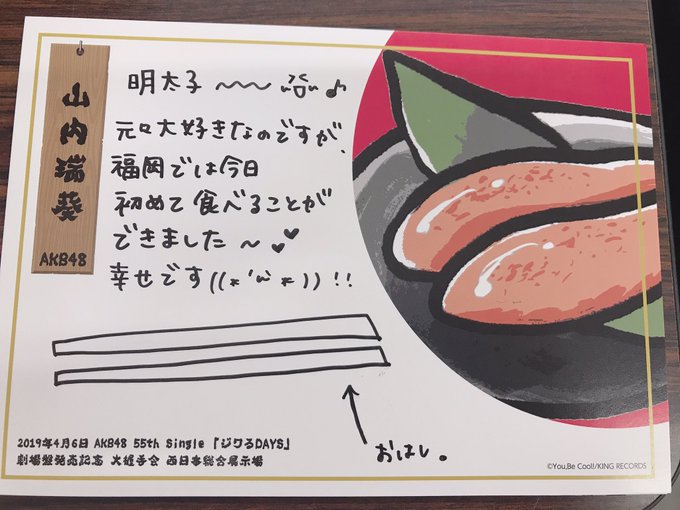 山内瑞葵
AKB48
明太子 〜〜 ♪
元々大好きなのですが、
福岡では今日
初めて食べることが
できました〜
幸せです((*'ω'*))!!
おはし。
2019年4月6日 AKB48 55th Single 『ジワるDAYS』
劇場盤発売記念 大握手会 西日本総合展示場
©You,Be Cool!/KING RECORDS